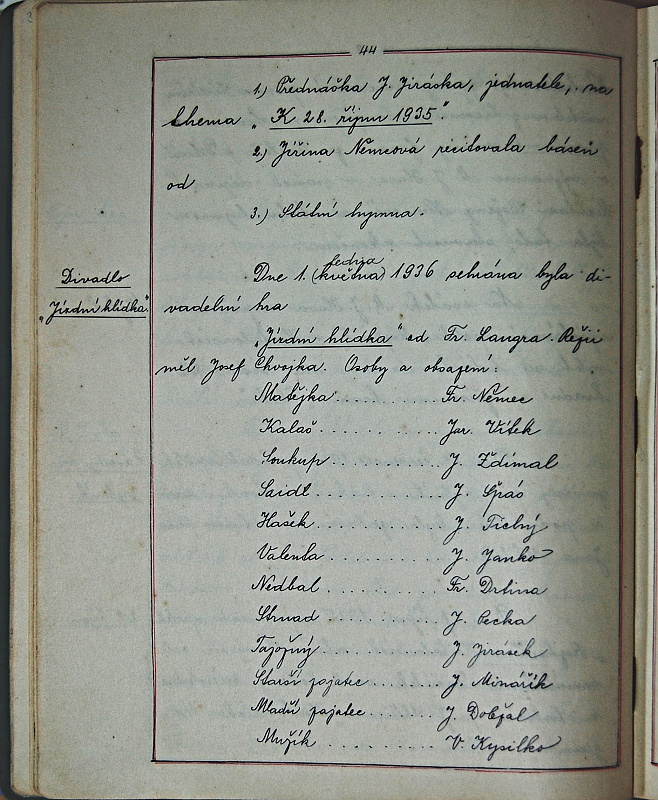 44
1.) Přednáška J. Jiráska, jednatele, na
thema „K 28. říjnu 1935".
2.) Jiřina Němcová recitovala báseň
od
3.) Státní hymna.
Divadlo
„Jízdní hlídka"
ledna
Dne 1. (května) 1936 sehrána byla di-
vadelní hra
„Jízdní hlídka" od Fr. Langra. Režii
měl Josef Chvojka. Osoby a obsazení:
Matějka ........ Fr. Němec
Kalaš ........ Jar. Vítek
Soukup ........ J. Ždímal
Saidl ........ J. Špás
Hašek ........ J. Tichý
Valenta ........ J. Janko
Nedbal ........ Fr. Drtina
Strnad ........ J. Pecka
Tajožný ........ J. Jirásek
Starší zajatec ........ J. Minářík
Mladší zajatec ........ J. Dobřal
Mužík ........ V. Kysilko